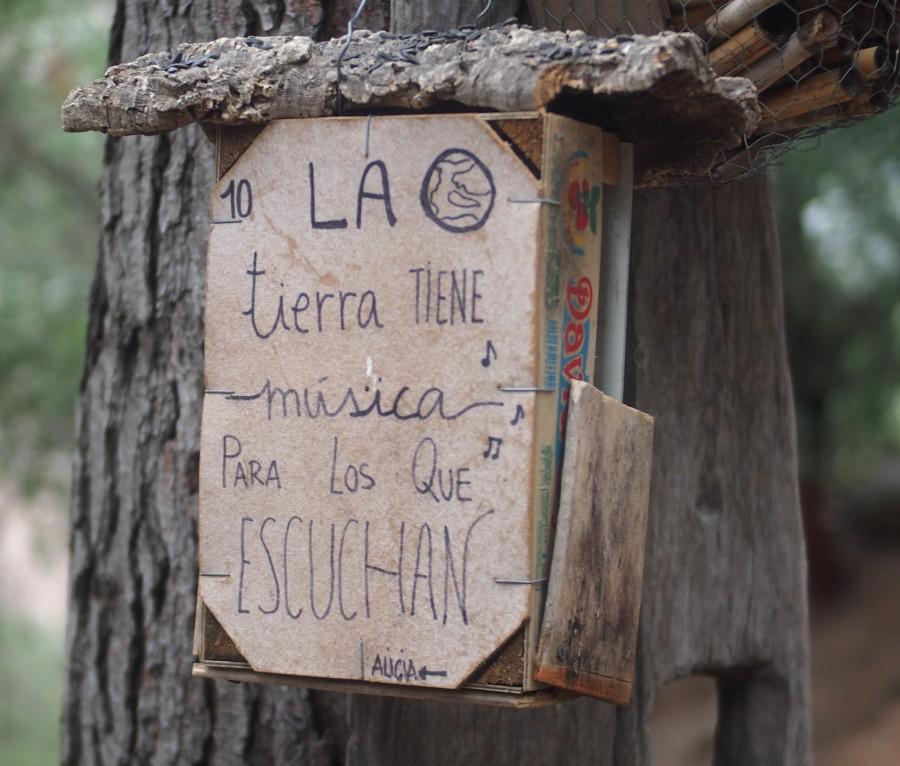 10
LA
tierra TIENE
música
PARA LOS QUE
ESCUCHAN
ALICIA